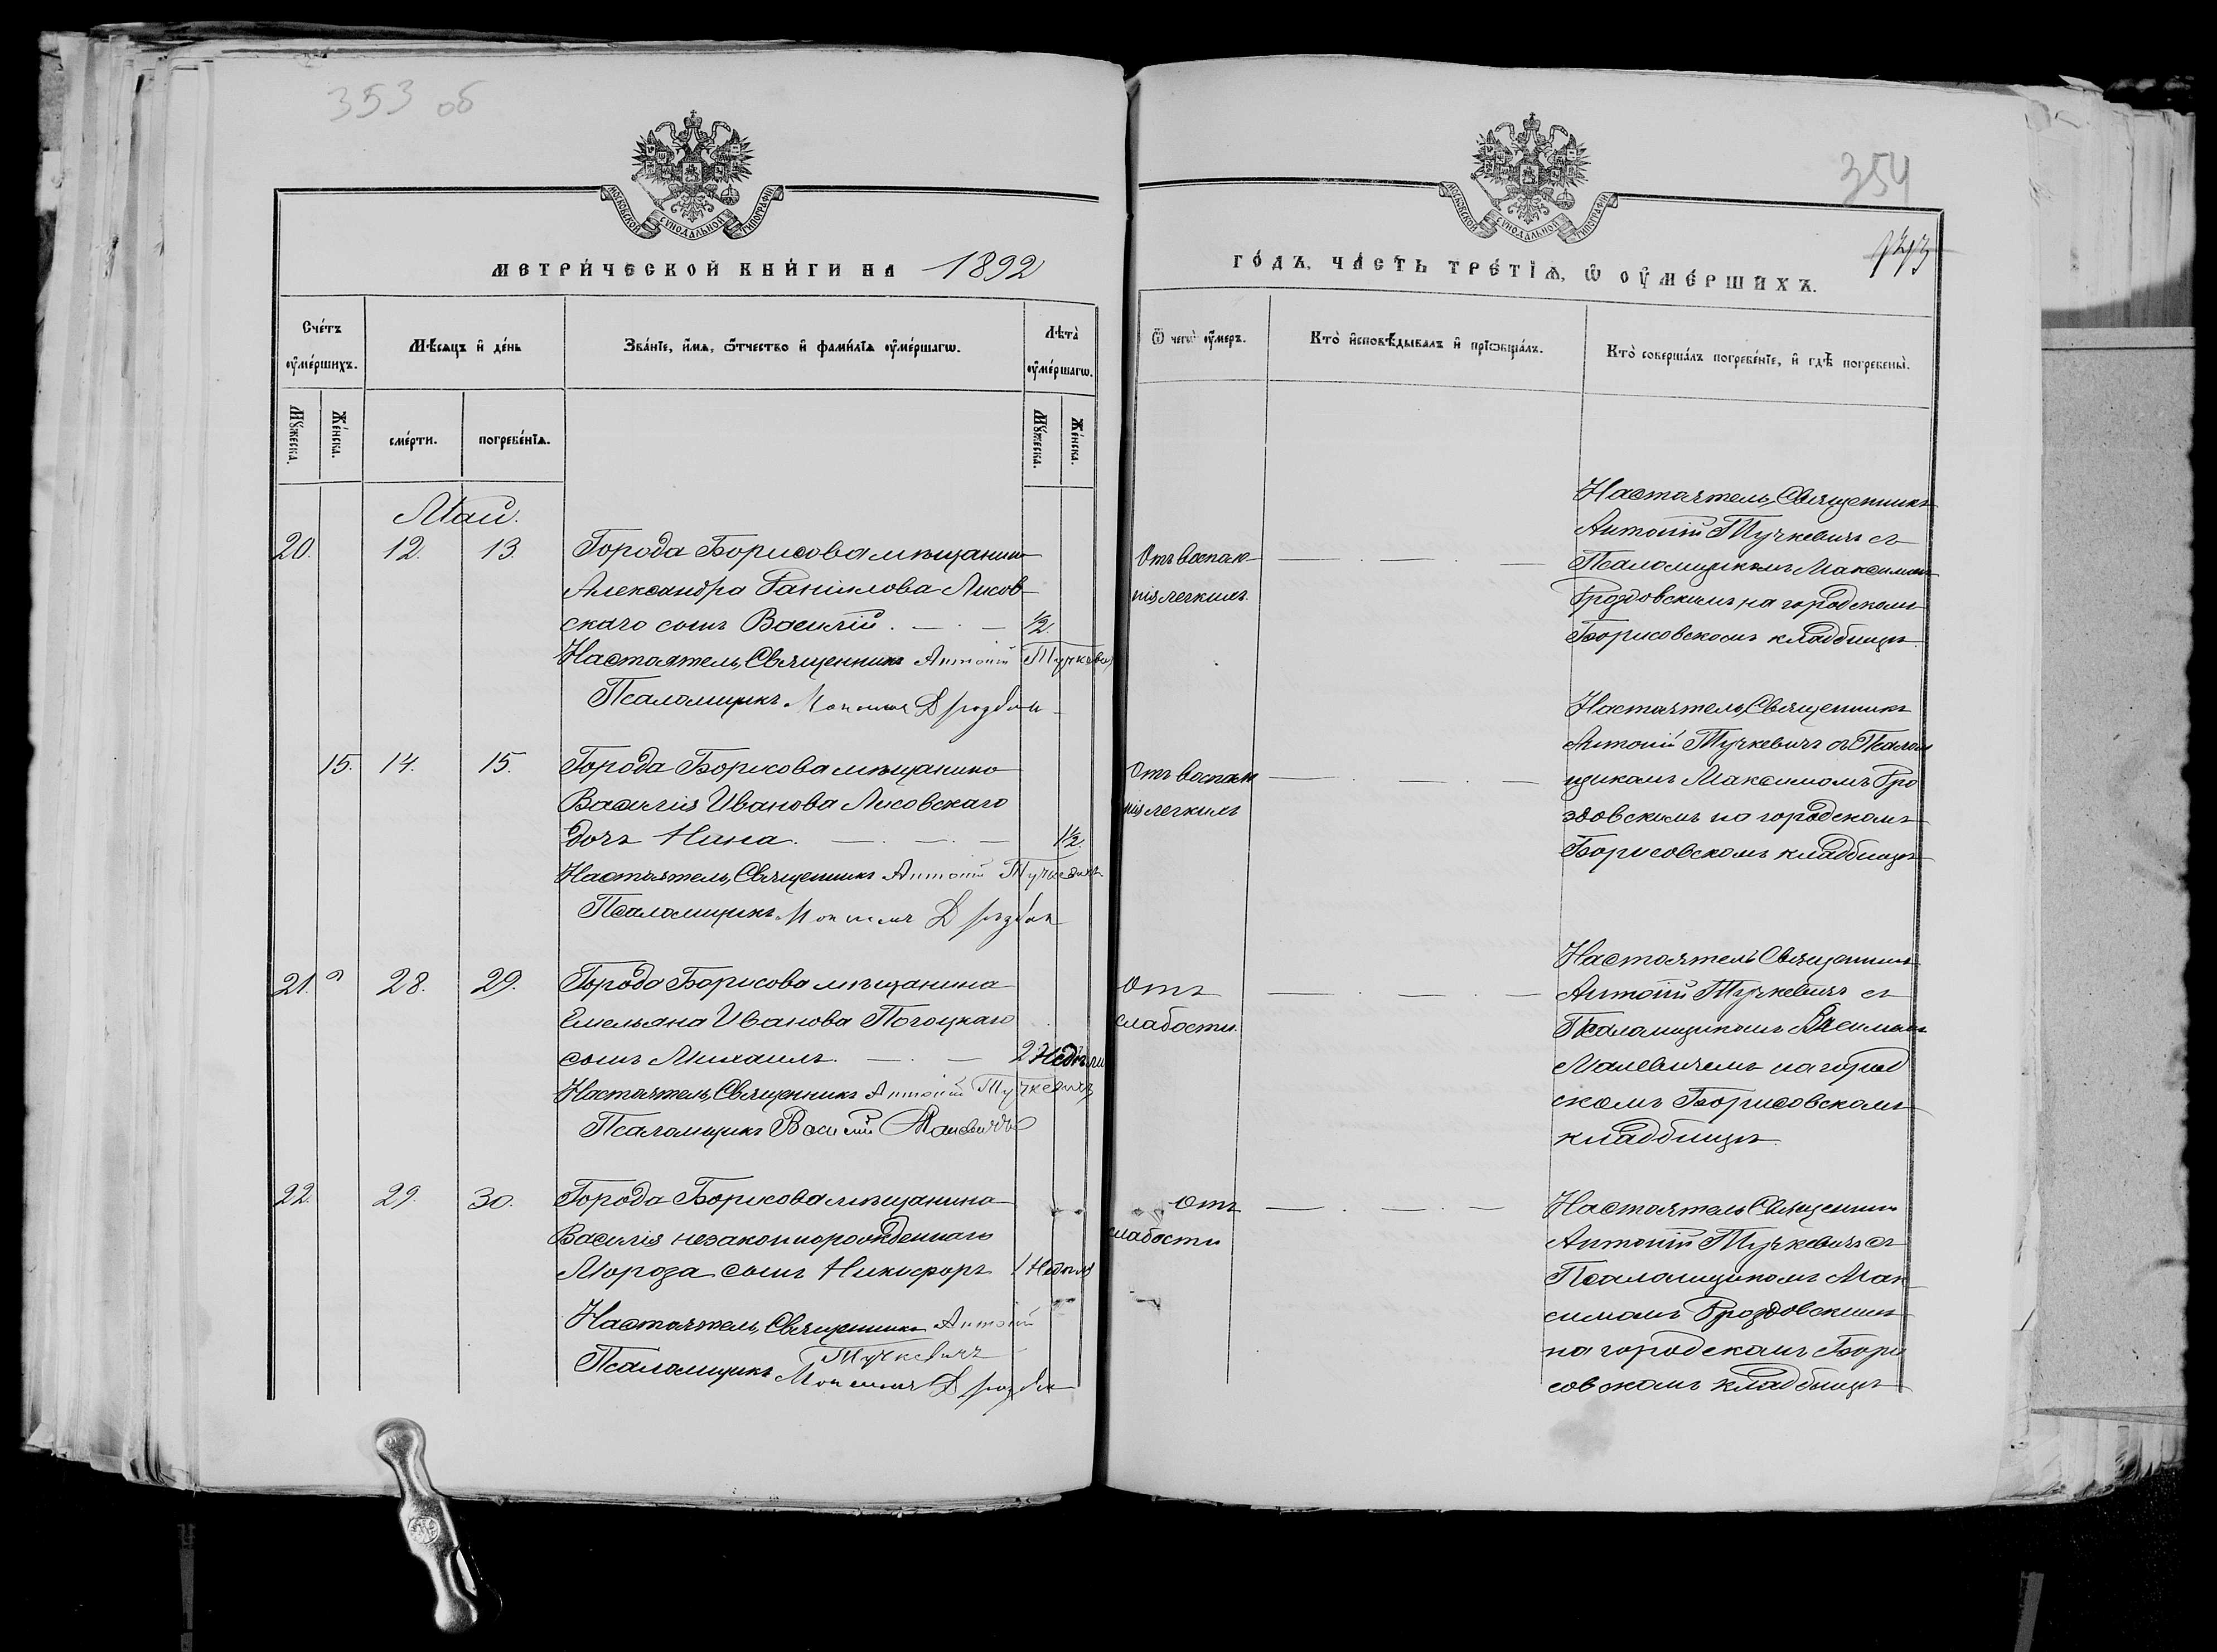 353 об
МОСКОВСКОЙ СѴНОДАЛЬНОЙ ТИПОГРАФІИ
МЕТРИ́ЧЕСКОЙ КНИ́ГИ НА 1892
Сче́тъ ᲂу҆ме́ршихъ.
Мѣ́сяцъ и҆ де́нь
Зва́нїе, и҆́мя, ѻ҆́тчество и҆ фами́лїя ᲂу҆ме́ршагѡ.
Лѣта̀ ᲂу҆ме́ршагѡ.
Мꙋ́жеска.
Же́нска.
сме́рти.
погребе́нїѧ.
Мꙋ́жеска.
Же́нска.
Май.
20. 12. 13. Города Борисова мѣщанина
Александра Данилова Лисов-
скаго сынъ Василій. 1/2.
Настоятель, Священникъ Антоній Тучкевичъ
Псаломщикъ Максимъ
15. 14. 15. Города Борисова мѣщанина
Василія Иванова Лисовскаго
дочь Нина. 1 1/2.
Настоятель, Священникъ Антоній Тучкевичъ
Псаломщикъ Максимъ
21. 28. 29. Города Борисова мѣщанина
Емельяна Иванова Погоцкаго
сынъ Михаилъ. 2 Недѣли
Настоятель, Священникъ Антоній Тучкевичъ
Псаломщикъ Василій Малевичъ
22. 29. 30. Города Борисова мѣщанина
Василія незаконнорожденнаго
Мороза сынъ Никифоръ 1 Недѣля
Настоятель, Священникъ Антоній
Тучкевичъ
Псаломщикъ Максимъ
354
МОСКОВСКОЙ СѴНОДАЛЬНОЙ ТИПОГРАФІИ
ГО́ДЪ, ЧА́СТЬ ТРЕ́ТЇѦ, Ѡ҆ ОУ҆МЕ́РШИХЪ.
Ѿ чегѡ̀ ᲂу҆́меръ.
Кто̀ и҆сповѣ́дывалъ и҆ прїѻбща́лъ.
Кто̀ соверша́лъ погребе́нїе, и҆ гдѣ̀ погребены̀.
Отъ воспале-
нія легкихъ.
Настоятель, Священникъ
Антоній Тучкевичъ съ
Псаломщикомъ Максимомъ
Дроздовскимъ на городскомъ
Борисовскомъ кладбищѣ.
Отъ воспале
нія легкихъ
Настоятель, Священникъ
Антоній Тучкевичъ съ Псалом
щикомъ Максимомъ Дро
здовскимъ на городскомъ
Борисовскомъ кладбищѣ
Отъ
слабости.
Настоятель Священникъ
Антоній Тучкевичъ съ
Псаломщикомъ Василіемъ
Малевичемъ на город
скомъ Борисовскомъ
кладбищѣ.
Отъ
слабости
Настоятель Священникъ
Антоній Тучкевичъ съ
Псаломщикомъ Мак
симомъ Дроздовскимъ
на городскомъ Бори
совскомъ кладбищѣ